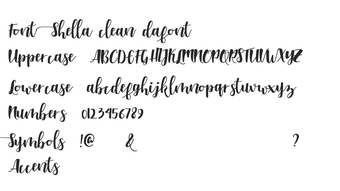 Font Shella clean dafont
Uppercase ABCDEFGHIJKLMNOPQRSTUVWXYZ
Lowercase abcdefghijklmnopqrstuvwxyz
Numbers 0123456789
Symbols !@ & ?
Accents